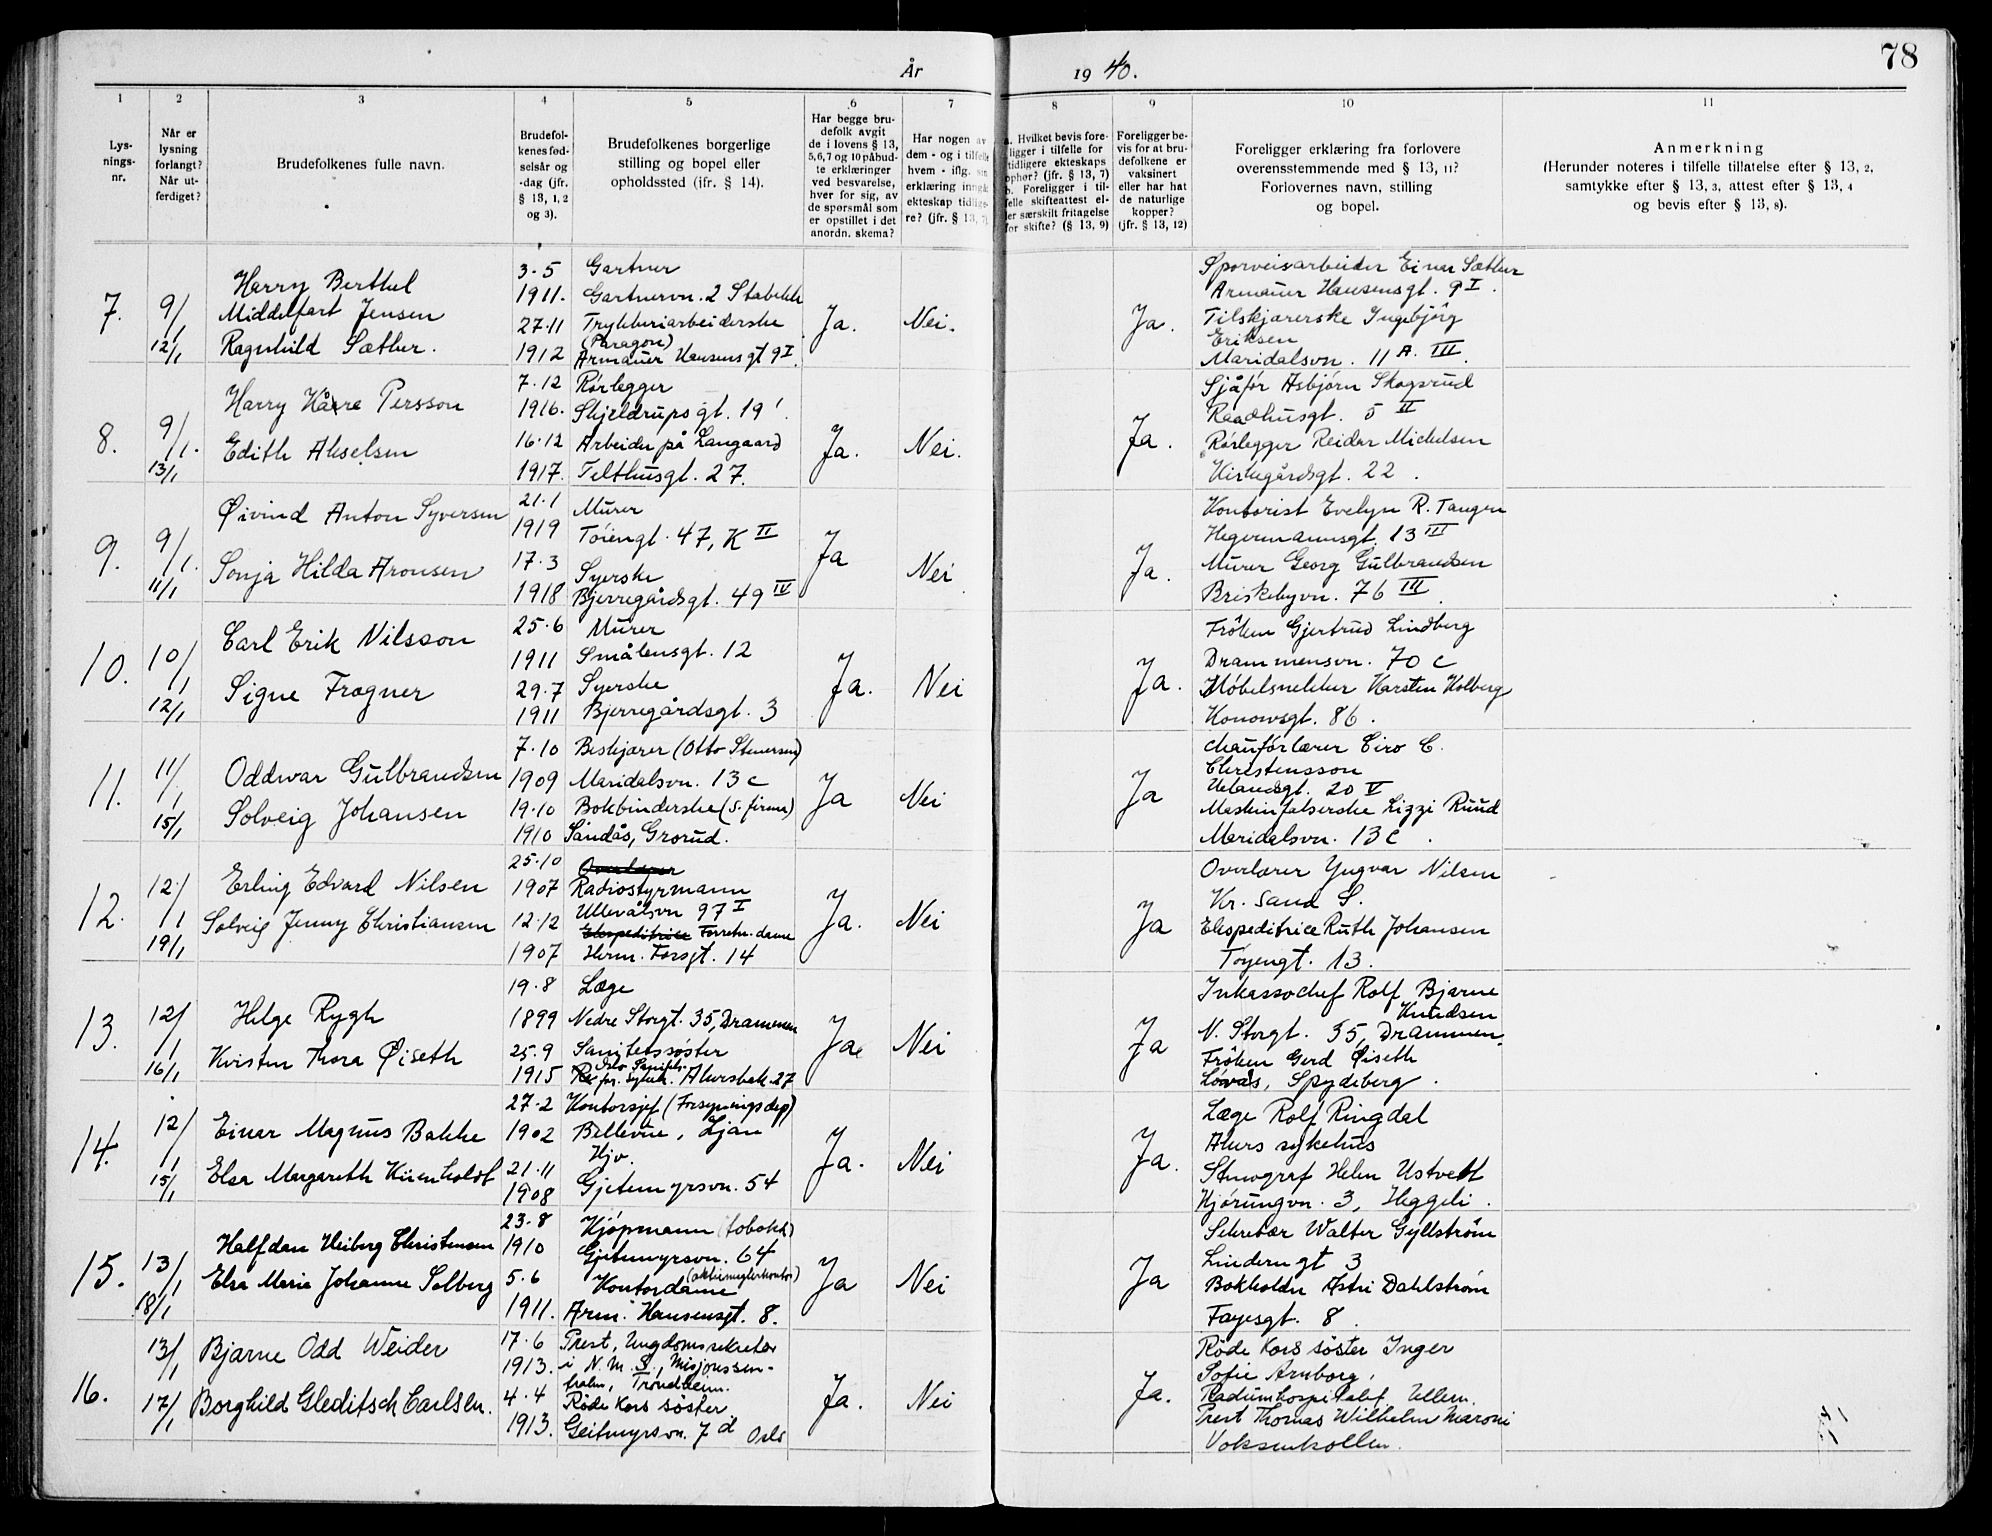 78
År 1940.
1 2 3 4 5 6 7 8 9 10 11
Lysnings-nr.
Når er lysning forlangt? Når utferdiget?
Brudefolkenes fulle navn.
Brudefolkenes fødselsår og -dag (jfr. § 13, 1, 2 og 3).
Brudefolkenes borgerlige stilling og bopel eller opholdssted (ifr. § 14).
Har begge brudefolk avgit de i lovens § 13, 5,6,7 og 10 påbudte erklæringer ved besvarelse, hver for sig, av de spørsmål som er opstillet i det anordn. skema?
Har nogen av dem - og i tilfelle hvem - iflg. sin erklæring inngåt ekteskap tidligere? (jfr. § 13, 7)
a. Hvilket bevis foreligger i tilfelle for tidligere ekteskaps ophør? (jfr. § 13, 7) b. Foreligger i tilfelle skifteattest eller særskilt fritagelse for skifte? (§ 13, 9)
Foreligger bevis for at brudefolkene er vaksinert eller har hat de naturlige kopper? (jfr. § 13, 12)
Foreligger erklæring fra forlovere overensstemmende med § 13, 11? Forlovernes navn, stilling og bopel.
Anmerkning (Herunder noteres i tilfelle tillatelse efter § 13, 2, samtykke efter § 13, 3, attest efter § 13, 4 og bevis efter § 13, 8).
7.
9/1
12/1
Harry Berthel
Middelfart Jensen
Ragnhild Sæther.
3-5
1911.
27-11
1912
Gartner
Gartnervn. 2 Stabekk
Trykkeriarbeiderske
(Paragon)
Armauer Hansensgt 9 I.
Ja.
Nei.
Ja.
Sporveisarbeider Einar Sæther
Armauer Hansensgt. 9 I.
Tilskjærerske Ingebjørg
Eriksen
Maridalsvn. 11 A. III.
8.
9/1.
13/1
Harry Kåre Persson
Edith Akselsen
7.12
1916.
16.12
1917.
Rørlegger
Skjeldrupsgt. 19'.
Arbeider på Langaard
Telthusgt. 27.
Ja.
Nei.
Ja.
Sjåfør Asbjørn Skogsrud
Raadhusgt. 5 II
Rørlegger Reidar Michelsen
Kirkegårdsgt. 22.
9.
9/1.
11/1
Øivind Anton Syversen
Sonja Hilda Aronsen
21.1
1919
17.3
1918
Murer
Tøiengt. 47, K II
Syerske
Bjerregårdsgt. 49 IV
Ja
Nei
Ja.
Kontorist Evelyn R. Tangen
Hegermannsgt. 13 III
Murer Georg Gulbrandsen
Briskebyvn. 76 III.
10.
10/1
12/1
Carl Erik Nilsson
Signe Frogner
25.6
1911
29.7
1911
Murer
Smålensgt. 12
Syerske
Bjerregårdsgt. 3
Ja.
Nei
Ja.
Frøken Gjertrud Lindberg
Drammensvn. 70 c
Møbelsnekker Karsten Holberg
Konowsgt. 86.
11.
11/1
15/1
Oddvar Gulbrandsen
Solveig Johansen
7.10
1909
19.10
1910
Beskjærer (Otto Stenersen)
Maridalsvn. 13 c
Bokbinderske (s. firma)
Sandås, Grorud.
Ja
Nei
Ja
Chaufførlærer Ciro C.
Christensson
Uelandsgt. 20 V
Maskinfalserske Lizzi Ruud
Maridalsvn. 13 c.
12.
12/1
19/1
Erling Edvard Nilsen
Solveig Jenny Christiansen
25.10
1907
12.12
1907
Overlærer
Radiostyrmann
Ullevålsvn 97 I
Ekspeditrice Forretn. dame
Herm. Fossgt. 14
Ja.
Nei
Ja
Overlærer Yngvar Nilsen
Kr. Sand S.
Ekspeditrice Ruth Johansen
Tøyengt. 13.
13.
12/1
16/1
Helge Rygh
Kirsten Thora Øiseth
19.8
1899
25.9
1915
Læge
Nedre Storgt. 35, Drammen
Sanitetssøster
Oslo Sanitets.
for. sykeh. Akersbak. 27
Ja
Nei
Ja
Inkassochef Rolf Bjarne
Knudsen
N. Storgt. 35, Drammen.
Frøken Gerd Øiseth
Løvås, Spydeberg.
14.
12/1
15/1
Einar Magnus Bakke
Elsa Margareth Kienholdt
27.2
1902
21.11
1908
Kontorsjef (Forsyningsdep)
Bellevue, Ljan
Hjv.
Gjetemyrsvn. 54
Ja.
Nei
Ja.
Læge Rolf Ringdal
Akers sykehus
Stenograf Helen Ustvedt
Kjørungvn. 3, Heggeli.
15.
13/1
18/1
Halfdan Heiberg Christensen
Elsa Marie Johanne Solberg
23.8
1910
5.6
1911.
Kjøpmann (tobakk)
Gjetemyrsvn. 64
Kontordame
Arm. Hansensgt. 8.
Ja
Nei
Ja
Sekretær Walter Gyllstrøm
Linderngt 3
Bokholder Astri Dahlstrøm
Fayesgt. 8.
16.
13/1
17/1
Bjarne Odd Weider
Borghild Gleditsch Carlsen.
17.6
1913.
4.4
1913.
Prest, Ungdomssekretær
i N.M.S., Misjonssen-
Trondheim.
Røde Kors søster
Geitmyrsvn. 7 d Oslo
Ja.
Nei
Ja.
Røde Kors søster Inger
Sofie Arnborg,
Radiumhospitalet, Ullern.
Prest Thomas Wilhelm Maroni
Voksenkollen.